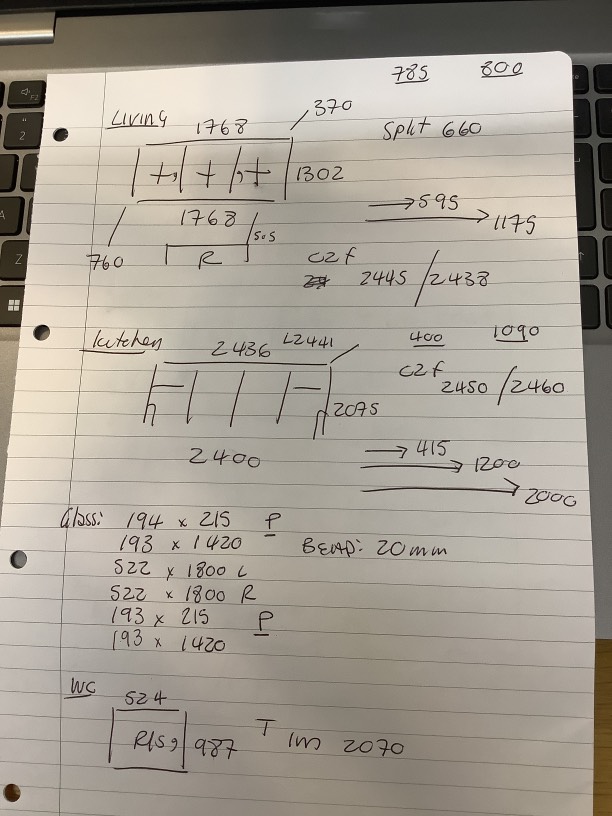 785 800
Living
1768 370
Split 660
1302
1768
595
1175
505
760 R
C2f
2445 / 2438
Kitchen
2436 2441
400 1090
C2f
2450 / 2460
2075
2400
415
1200
2000
Glass: 194 x 215 P
193 x 1420 BEAD: 20mm
522 x 1800 L
522 x 1800 R
193 x 215 P
193 x 1420
WC
524
987 T 1m 2070